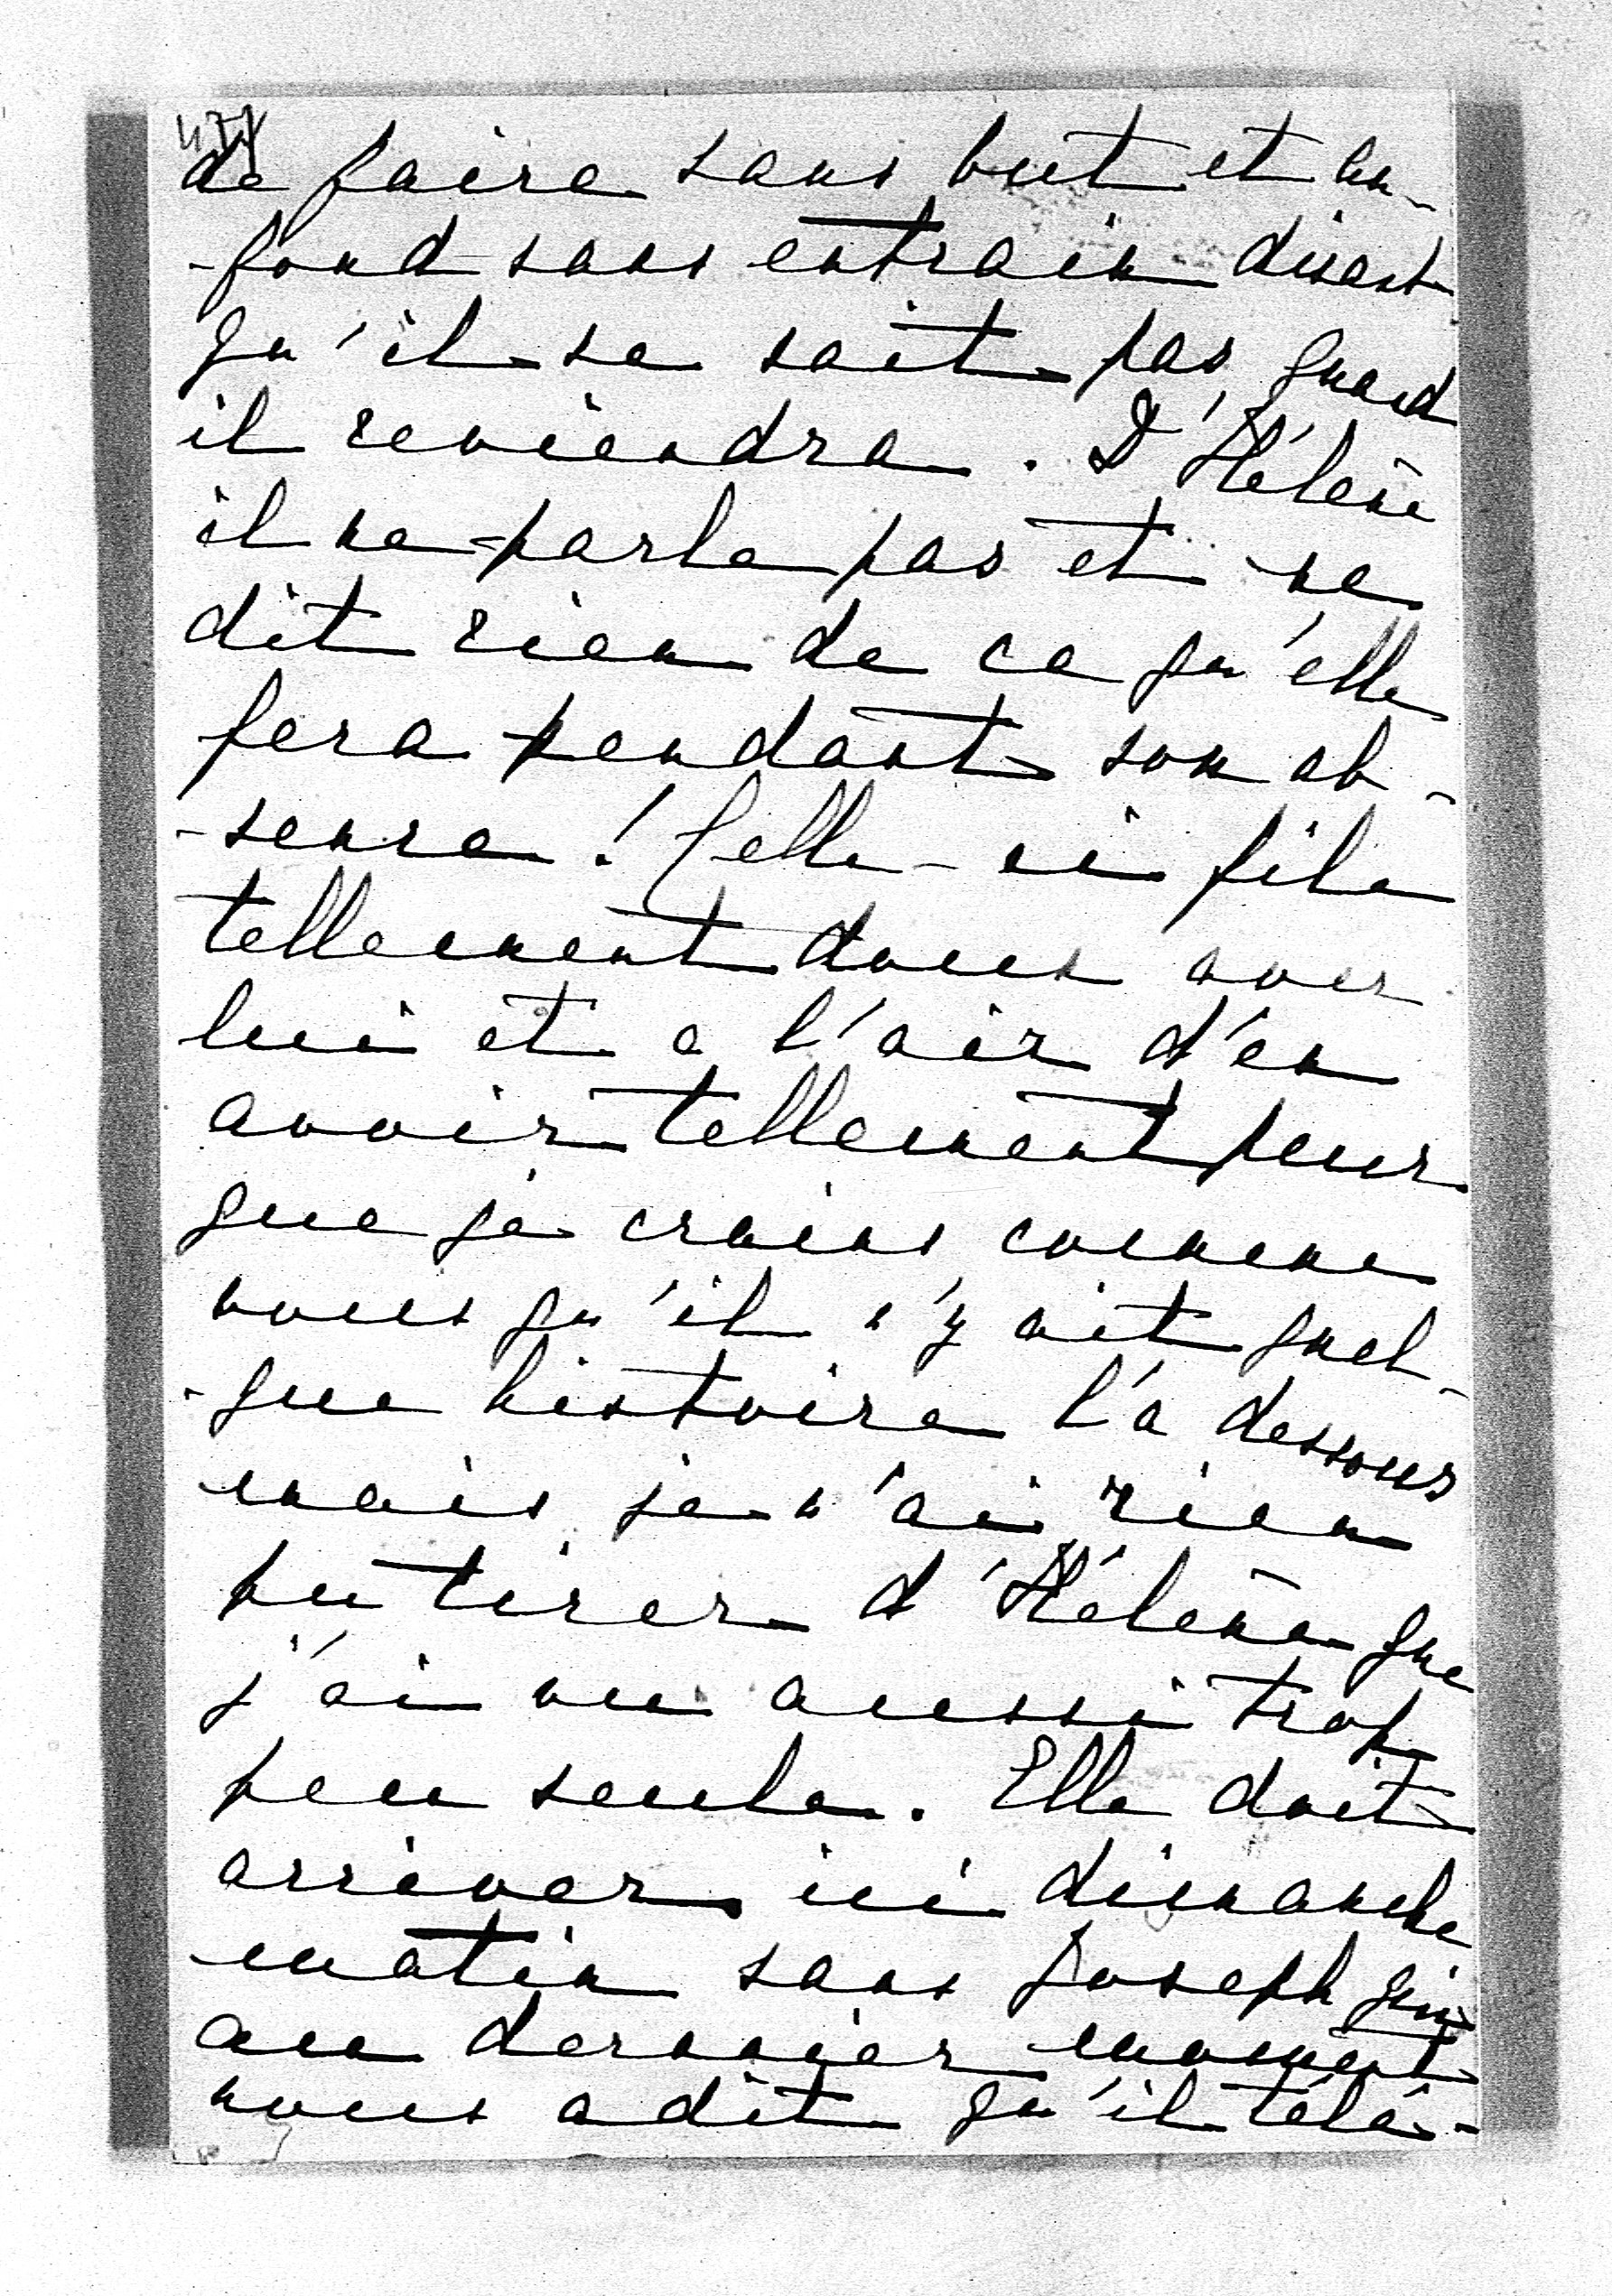 477
de faire sans but et au-
-fond sans entrain disant
qu'il ne sait pas quand
il reviendra. D'Hélène
il ne parle pas et ne
dit rien de ce qu'elle
fera pendant son ab-
-sence ! Celle-ci file
tellement doux avec
lui et a l'air d'en
avoir tellement peur
que je crains comme
vous qu'il n'y ait quel-
-que histoire là dessous
mais je n'ai rien
pu tirer d'Hélène que
j'ai vue aussi trop
peu seule. Elle doit
arriver ici dimanche
matin sans Joseph qui
au dernier moment
nous a dit qu'il télé-